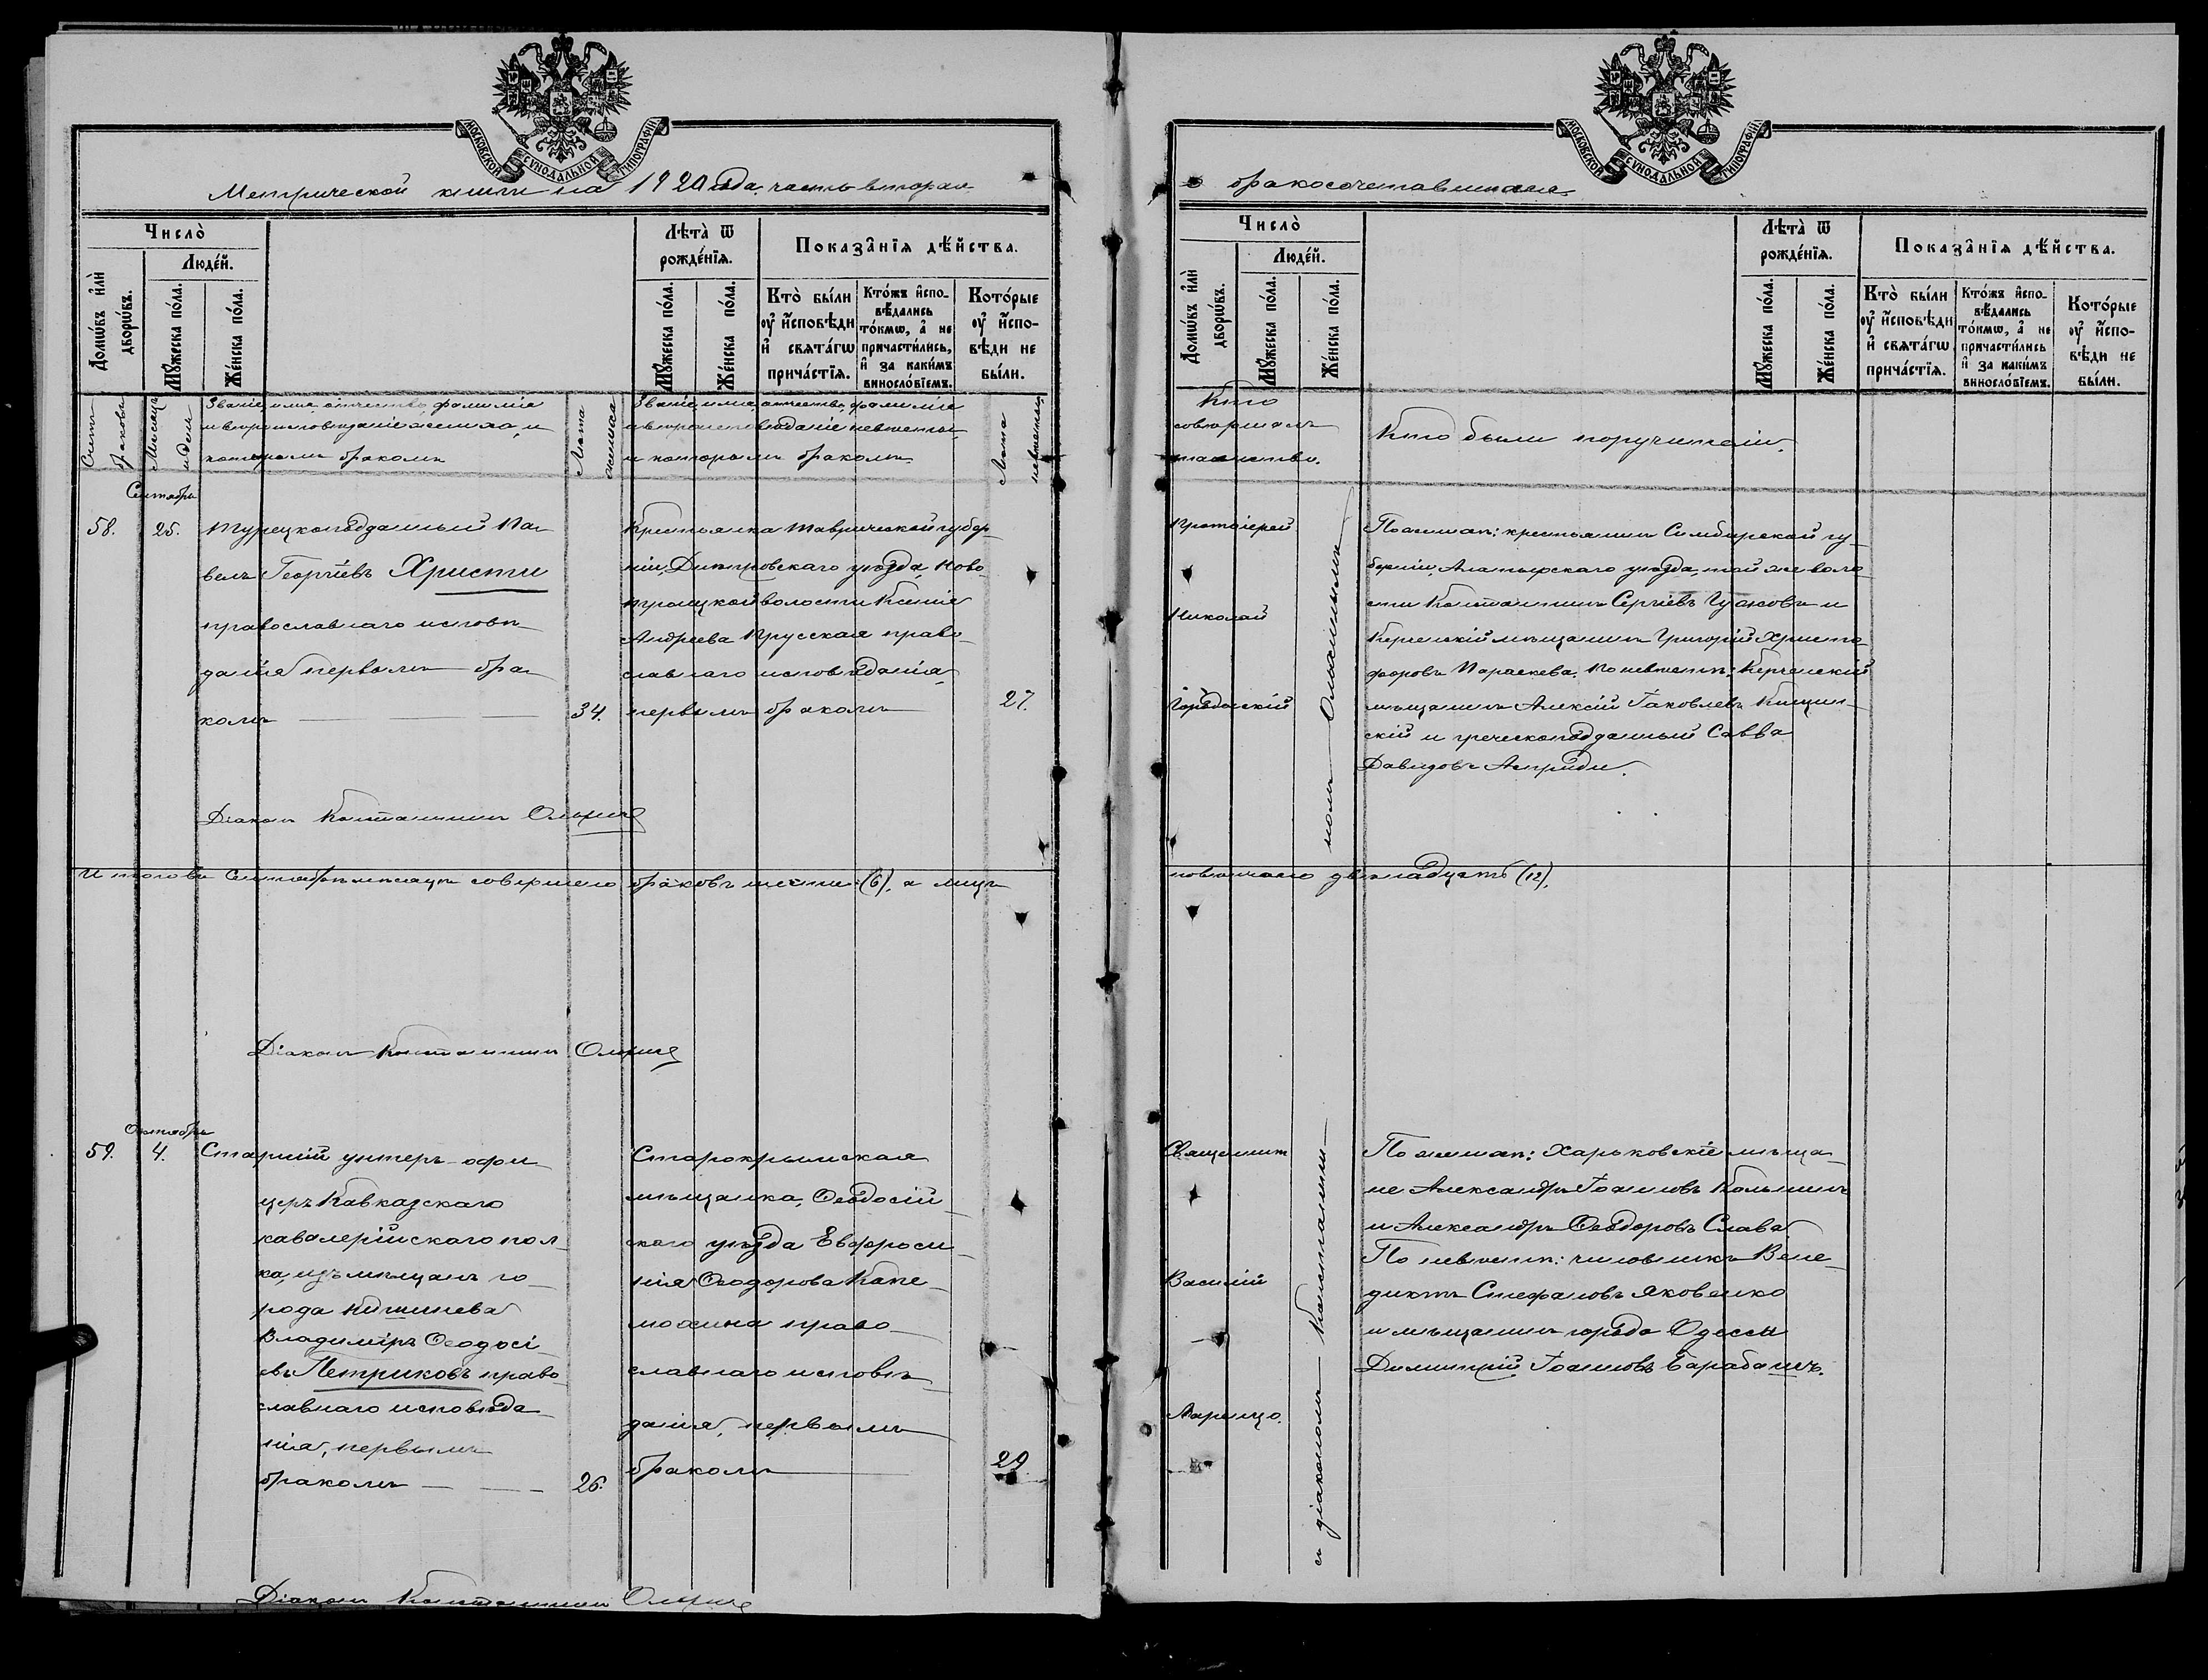 МОСКОВСКОЙ СУНОДАЛЬНОЙ ТИПОГРАФІИ
Метрической книги на 1920 года, часть вторая
Число̀
Люде́й.
Домѡ́въ и҆лѝ дворѡ́въ.
Мꙋ́жеска по́ла.
Же́нска по́ла.
Лѣта̀ ѿ рожде́нїѧ.
Мꙋ́жеска по́ла.
Же́нска по́ла.
Показа̑нїѧ дѣ́йства.
Кто̀ бы́ли ᲂу҆ и҆сповѣди и҆ свѧта́гѡ прича́стїѧ.
Кто́жъ и҆спо-
вѣдались
то́кмѡ, а҆ не
причасти́лись,
и҆ за каки́мъ
винослѡ́вїемъ.
Кото́рые
ᲂу҆ и҆спо-
вѣди не
бы́ли.
Счетъ браковъ
Мѣсяцъ и день
Званіе, имя, отчество, фамилія
и вѣроисповѣданіе жениха, и
которымъ бракомъ
Лѣта жениха
Званіе, имя, отчество, фамилія
и вѣроисповѣданіе невѣсты,
и которымъ бракомъ.
Лѣта невѣсты
Сентябрь
58. 25. Турецкоподданный Па-
велъ Георгіевъ Христи
православнаго исповѣ-
данія первымъ бра-
комъ 34.
Крестьянка Таврической губер-
ніи, Днѣпровскаго уѣзда, Ново-
троицкой волости Ксенія
Андреева Прусская право-
славнаго исповѣданія,
первымъ бракомъ 27.
Діаконъ Константинъ
Итого въ Сентябрѣ мѣсяцѣ совершено браковъ шесть (6), а лицъ
Діаконъ Константинъ
Октябрь
59. 4. Старшій унтеръ-офи-
церъ Кавказскаго
кавалерійскаго пол-
ка, изъ мѣщанъ го-
рода Кишинева
Владиміръ Ѳеодосі-
евъ Петриковъ право-
славнаго исповѣда-
нія, первымъ
бракомъ 26.
Старокрымская
мѣщанка, Ѳеодосій-
скаго уѣзда Евфроси-
нія Ѳеодорова
право-
славнаго исповѣ-
данія, первымъ
бракомъ 29
Діаконъ Константинъ
МОСКОВСКОЙ СУНОДАЛЬНОЙ ТИПОГРАФІИ
о бракосочетавшихся
Число̀
Люде́й.
Домѡ́въ и҆лѝ дворѡ́въ.
Мꙋ́жеска по́ла.
Же́нска по́ла.
Лѣта̀ ѿ рожде́нїѧ.
Мꙋ́жеска по́ла.
Же́нска по́ла.
Показа̑нїѧ дѣ́йства.
Кто̀ бы́ли ᲂу҆ и҆сповѣди и҆ свѧта́гѡ прича́стїѧ.
Кто́жъ и҆спо-
вѣдались
то́кмѡ, а҆ не
причасти́лись
и҆ за каки́мъ
винослѡ́вїемъ.
Кото́рые
ᲂу҆ и҆спо-
вѣди не
бы́ли.
Кто
совершалъ
таинство.
Кто были поручители.
Протоіерей
Николай
Городанскій
По женихѣ: крестьянинъ Симбирской гу-
берніи, Алатырскаго уѣзда, той же воло-
сти Константинъ Сергіевъ и
Керченскій мѣщанинъ Григорій Христо-
форовъ Параскева. По невѣстѣ: Керченскій
мѣщанинъ Алексій Іаковлевъ
скій и греческоподданный Савва
Давидовъ
повѣнчано двѣнадцать (12).
Священникъ
Василій
съ діакономъ Константи-
номъ
По женихѣ: Харьковскіе мѣща-
не Александръ Іоанновъ
и Александръ Ѳеодоровъ Слава
По невѣстѣ: чиновникъ Вене-
диктъ Стефановъ Яковенко
и мѣщанинъ города Одессы
Димитрій Іоанновъ Барабашъ.